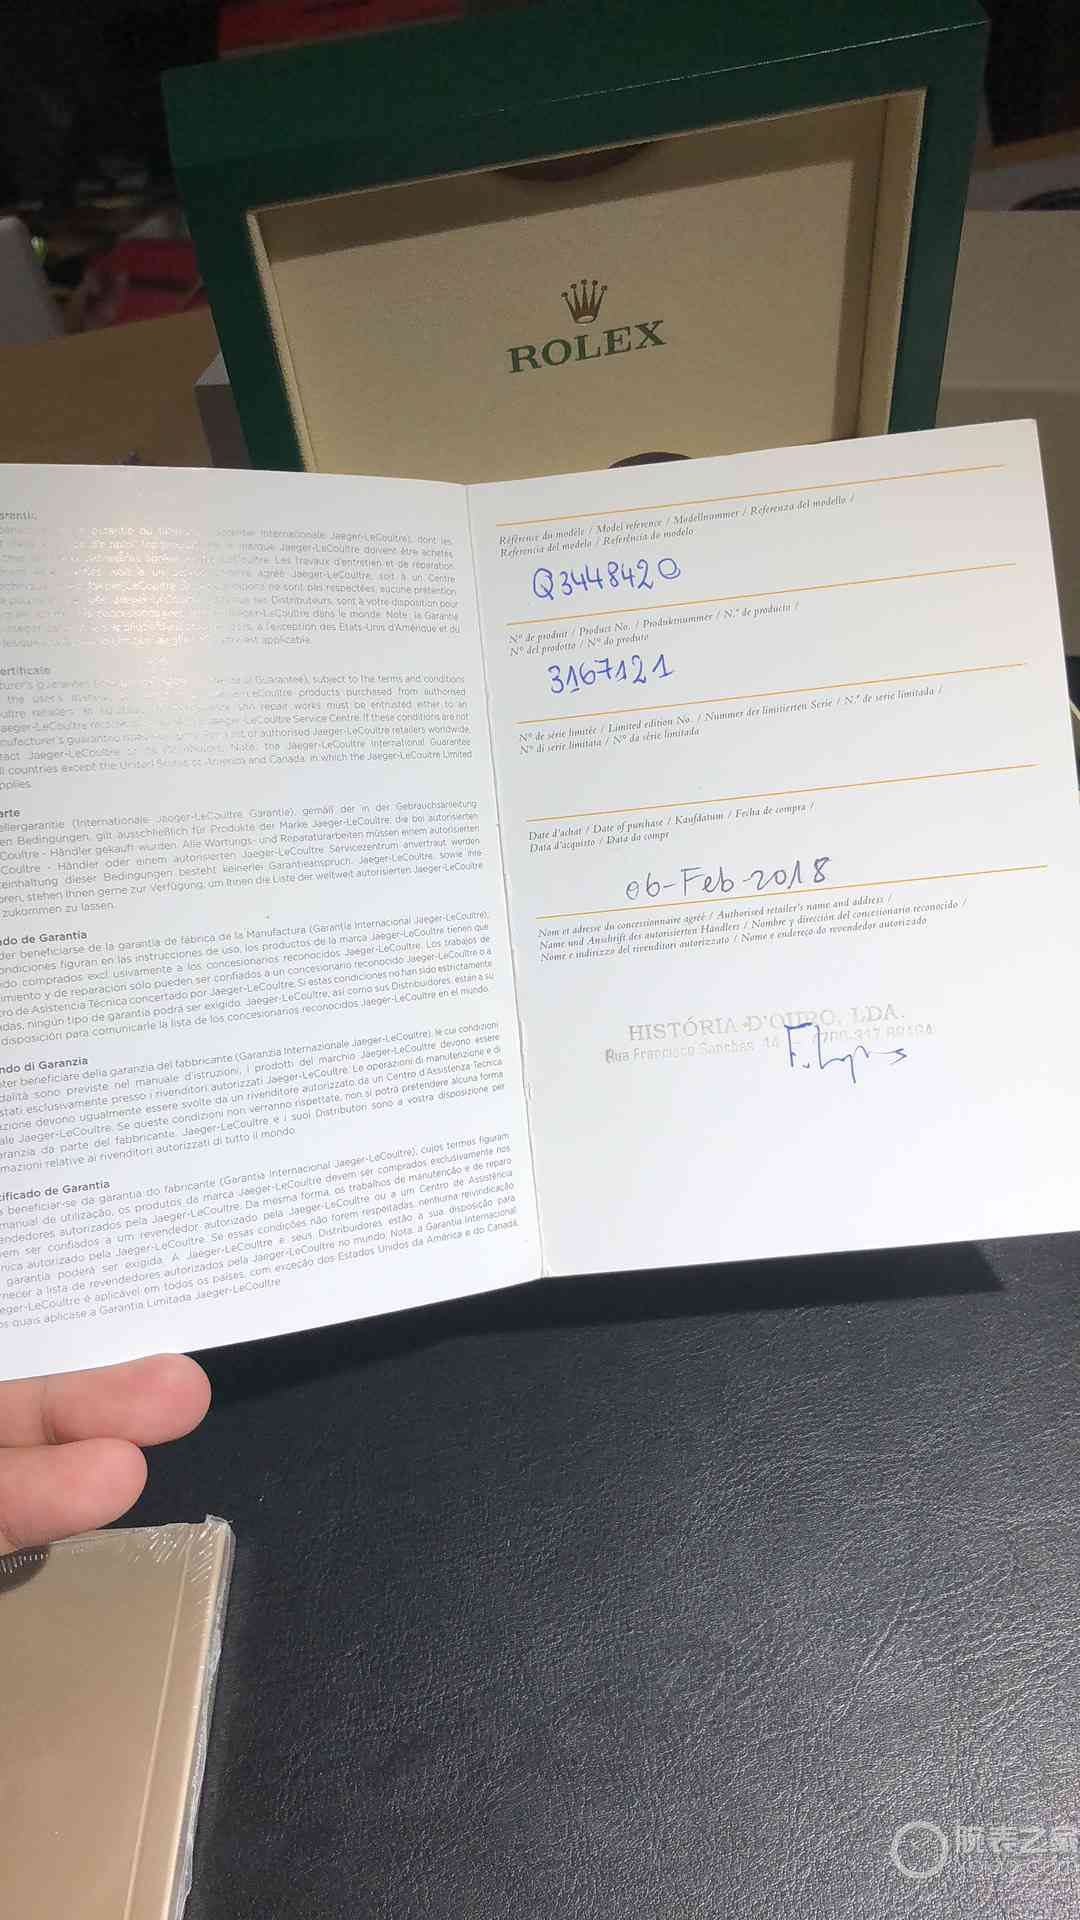 ROLEX
Internationale Jaeger-LeCoultre), dont les
marque Jaeger-LeCoultre doivent être achetés
LeCoultre. Les travaux d'entretien et de réparation
agréé Jaeger-LeCoultre, soit à un Centre
ne sont pas respectées, aucune prétention
ses Distributeurs, sont à votre disposition pour
Jaeger-LeCoultre dans le monde. Note: la Garantie
à l'exception des États-Unis d'Amérique et du
est applicable.
Guarantee), subject to the terms and conditions
LeCoultre products purchased from authorised
repair works must be entrusted either to an
Jaeger-LeCoultre Service Centre. If these conditions are not
of authorised Jaeger-LeCoultre retailers worldwide,
Note: the Jaeger-LeCoultre International Guarantee
countries except the United States of America and Canada, in which the Jaeger-LeCoultre Limited
(Internationale Jaeger-LeCoultre Garantie), gemäß der in der Gebrauchsanleitung
Bedingungen, gilt ausschließlich für Produkte der Marke Jaeger-LeCoultre, die bei autorisierten
Händler gekauft wurden. Alle Wartungs- und Reparaturarbeiten müssen einem autorisierten
- Händler oder einem autorisierten Jaeger-LeCoultre Servicezentrum anvertraut werden.
dieser Bedingungen besteht keinerlei Garantieanspruch. Jaeger-LeCoultre, sowie ihre
stehen Ihnen gerne zur Verfügung, um Ihnen die Liste der weltweit autorisierten Jaeger-LeCoultre
zukommen zu lassen.
de Garantía
beneficiarse de la garantía de fábrica de la Manufactura (Garantía Internacional Jaeger-LeCoultre),
condiciones figuran en las instrucciones de uso, los productos de la marca Jaeger-LeCoultre tienen que
comprados exclusivamente a los concesionarios reconocidos Jaeger-LeCoultre. Los trabajos de
y de reparación sólo pueden ser confiados a un concesionario reconocido Jaeger-LeCoultre o a
de Asistencia Técnica concertado por Jaeger-LeCoultre. Si estas condiciones no han sido estrictamente
ningún tipo de garantía podrá ser exigido. Jaeger-LeCoultre, así como sus Distribuidores, están a su
disposición para comunicarle la lista de los concesionarios reconocidos Jaeger-LeCoultre en el mundo.
di Garanzia
beneficiare della garanzia del fabbricante (Garanzia Internazionale Jaeger-LeCoultre), le cui condizioni
sono previste nel manuale d'istruzioni, i prodotti del marchio Jaeger-LeCoultre devono essere
esclusivamente presso i rivenditori autorizzati Jaeger-LeCoultre. Le operazioni di manutenzione e di
devono ugualmente essere svolte da un rivenditore autorizzato da un Centro d'Assistenza Tecnica
Jaeger-LeCoultre. Se queste condizioni non verranno rispettate, non si potrà pretendere alcuna forma
da parte del fabbricante. Jaeger-LeCoultre e i suoi Distributori sono a vostra disposizione per
relative ai rivenditori autorizzati di tutto il mondo.
de Garantia
beneficiar-se da garantia do fabricante (Garantia Internacional Jaeger-LeCoultre), cujos termos figuram
manual de utilização, os produtos da marca Jaeger-LeCoultre devem ser comprados exclusivamente nos
autorizados pela Jaeger-LeCoultre. Da mesma forma, os trabalhos de manutenção e de reparo
ser confiados a um revendedor autorizado pela Jaeger-LeCoultre ou a um Centro de Assistência
autorizado pela Jaeger-LeCoultre. Se essas condições não forem respeitadas, nenhuma reivindicação
garantia poderá ser exigida. A Jaeger-LeCoultre e seus Distribuidores estão a sua disposição para
a lista de revendedores autorizados pela Jaeger-LeCoultre no mundo. Nota: a Garantia Internacional
é aplicável em todos os países, com exceção dos Estados Unidos da América e do Canadá,
quais aplicase a Garantia Limitada Jaeger-LeCoultre
Référence du modèle / Model reference / Modellnummer / Referenza del modello /
Referencia del modelo / Referência do modelo
Q3448420
N° de produit / Product No. / Produktnummer / N.° de producto /
N° del prodotto / N° do produto
3167121
N° de série limitée / Limited edition No. / Nummer der limitierten Serie / N.° de serie limitada /
N° di serie limitata / N° da série limitada
Date d'achat / Date of purchase / Kaufdatum / Fecha de compra /
Data d'acquisto / Data da compr
06-Feb-2018
Nom et adresse du concessionnaire agréé / Authorised retailer's name and address /
Name und Anschrift des autorisierten Händlers / Nombre y dirección del concesionario reconocido /
Nome e indirizzo del rivenditori autorizzato / Nome e endereço do revendedor autorizado
HISTÓRIA D'OURO, LDA.
Rua Francisco Sanches, 14
腕表之家
xbiao.com